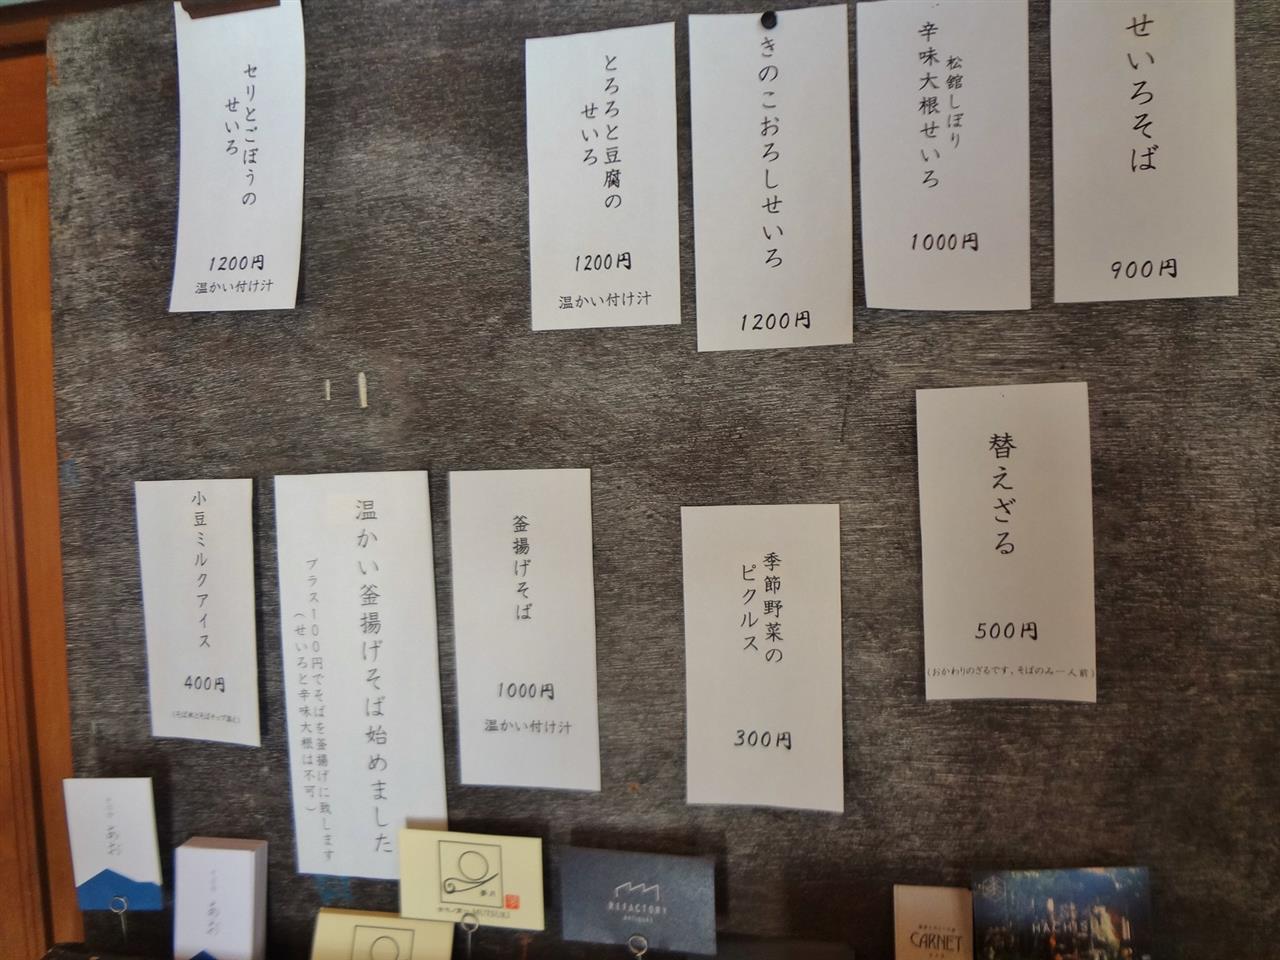 せいろそば
900円
松館しぼり
辛味大根せいろ
1000円
きのこおろしせいろ
1200円
とろろと豆腐の
せいろ
1200円
温かい付け汁
セリとごぼうの
せいろ
1200円
温かい付け汁
替えざる
500円
(おかわりのざるです、そばのみ一人前)
季節野菜の
ピクルス
300円
釜揚げそば
1000円
温かい付け汁
温かい釜揚げそば始めました
プラス100円でそばを釜揚げに致します
(せいろと辛味大根は不可)
小豆ミルクアイス
400円
あお
あお
MUTSUKI
REFACTORY
antiques
CARNET
HACHIS